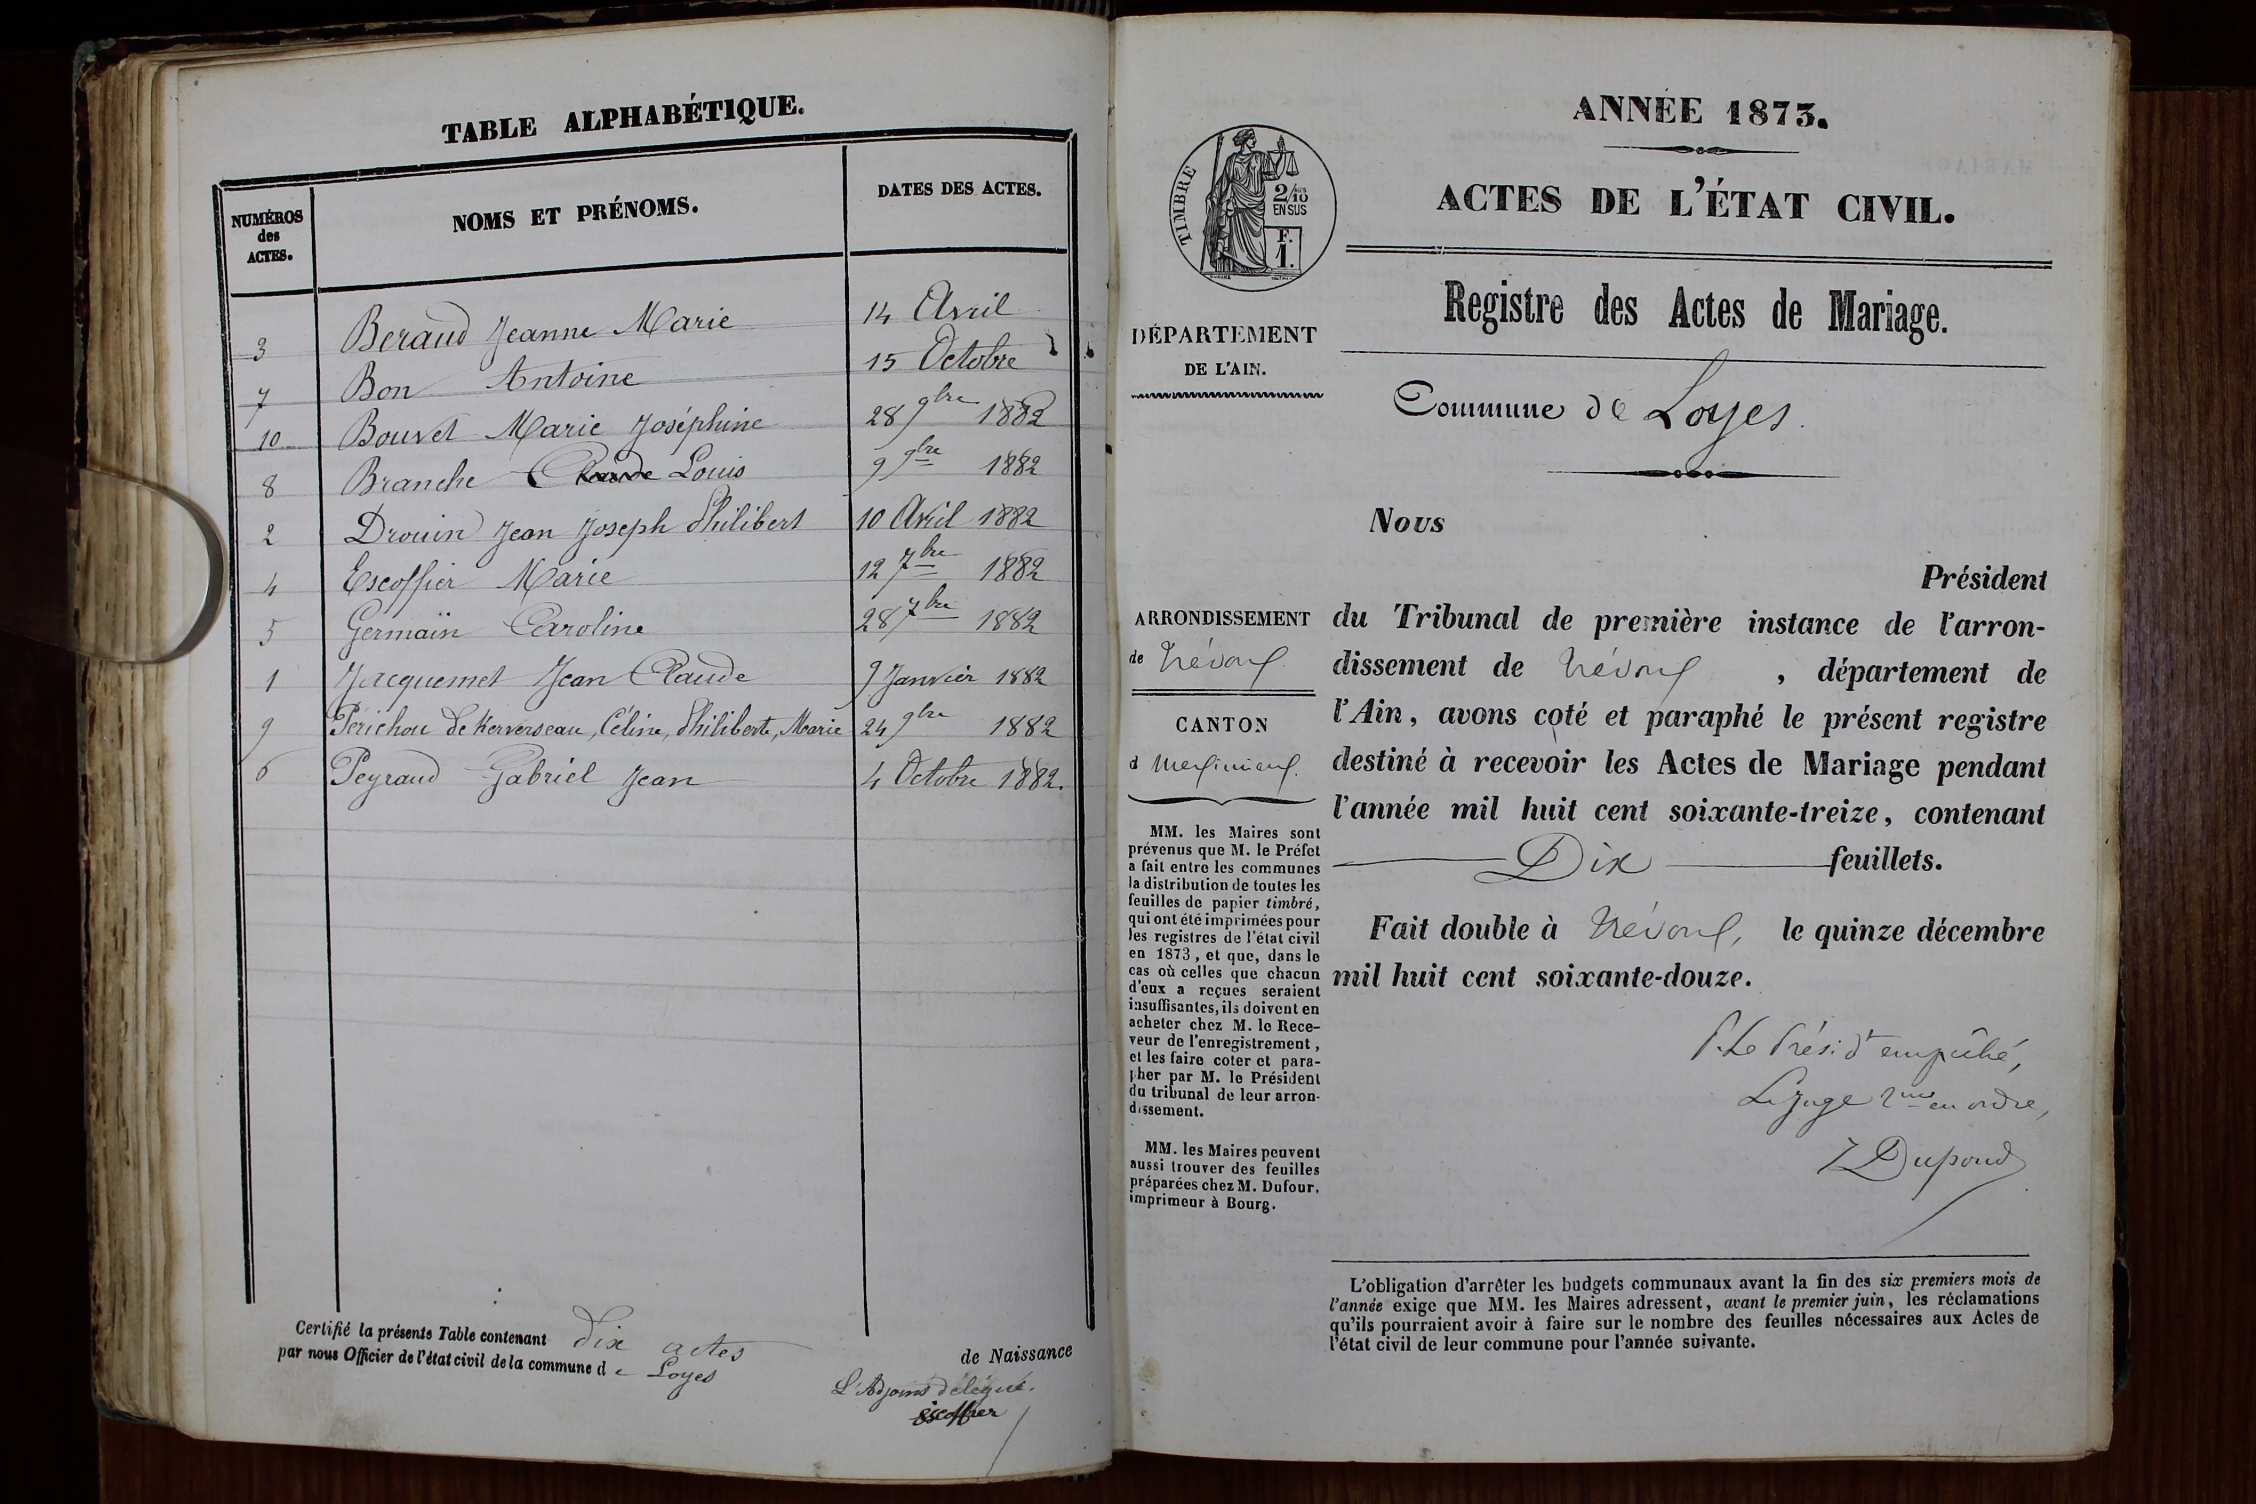 TABLE ALPHABÉTIQUE.
NUMÉROS des ACTES.
NOMS ET PRÉNOMS.
DATES DES ACTES.
3 Beraud Jeanne Marie 14 Avril
7 Bon Antoine 15 Octobre
10 Bouvet Marie Joséphine 28 9bre 1882
8 Branche Claude Louis 9 9bre 1882
2 Drouin Jean Joseph Philibert 10 Avril 1882
4 Escoffier Marie 12 7bre 1882
5 Germain Caroline 28 7bre 1882
1 Jacquemet Jean Claude 9 Janvier 1882
9 Périchou de Kerverseau, Céline, Philiberte, Marie 24 9bre 1882
6 Peyraud Gabriel Jean 4 Octobre 1882.
Certifié la présente Table contenant dix actes de Naissance
par nous Officier de l'état civil de la commune de Loyes
L'Adjoint délégué.
Escoffier
ANNÉE 1873.
ACTES DE L'ÉTAT CIVIL.
TIMBRE
2/10
EN SUS
F.
1.
Registre des Actes de Mariage.
DÉPARTEMENT
DE L'AIN.
Commune de Loyes.
ARRONDISSEMENT
de Trévoux
CANTON
d Meximieux.
MM. les Maires sont
prévenus que M. le Préfet
a fait entre les communes
la distribution de toutes les
feuilles de papier timbré,
qui ont été imprimées pour
les registres de l'état civil
en 1873, et que, dans le
cas où celles que chacun
d'eux a reçues seraient
insuffisantes, ils doivent en
acheter chez M. le Rece-
veur de l'enregistrement,
et les faire coter et para-
pher par M. le Président
du tribunal de leur arron-
dissement.
MM. les Maires peuvent
aussi trouver des feuilles
préparées chez M. Dufour,
imprimeur à Bourg.
Nous
Président
du Tribunal de première instance de l'arron-
dissement de Trévoux, département de
l'Ain, avons coté et paraphé le présent registre
destiné à recevoir les Actes de Mariage pendant
l'année mil huit cent soixante-treize, contenant
Dix feuillets.
Fait double à Trévoux, le quinze décembre
mil huit cent soixante-douze.
P. Le Présidt empêché,
Le Juge 2me en ordre,
Dupond
L'obligation d'arrêter les budgets communaux avant la fin des six premiers mois de
l'année exige que MM. les Maires adressent, avant le premier juin, les réclamations
qu'ils pourraient avoir à faire sur le nombre des feuilles nécessaires aux Actes de
l'état civil de leur commune pour l'année suivante.